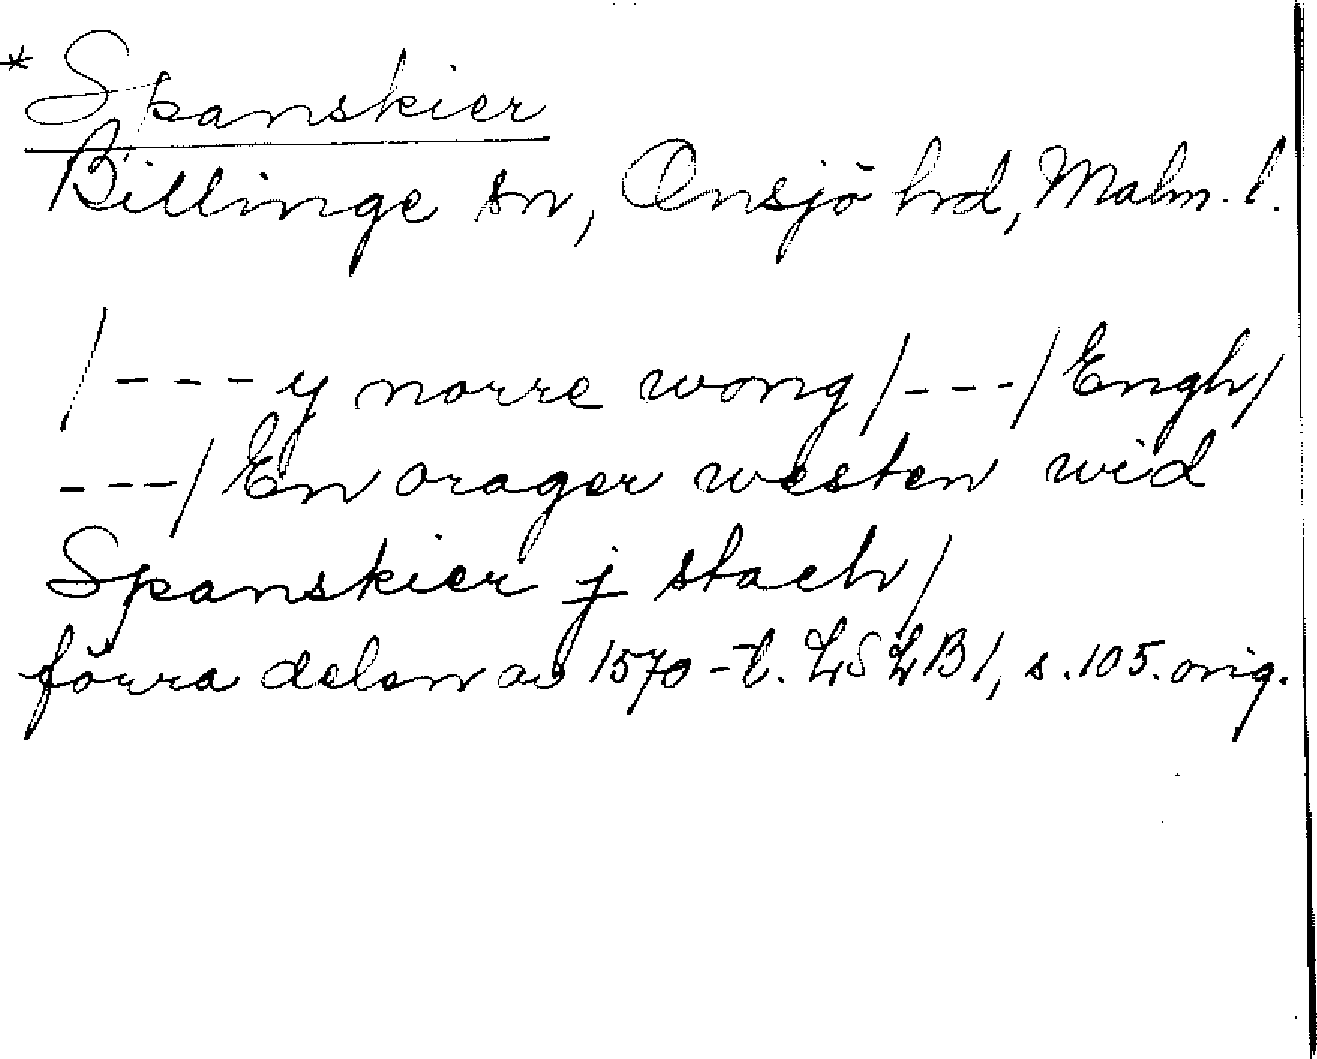 * Spanskier
Billinge sn, Onsjö hrd, Malm. l.
/--- y norre wong /---/ Engh/
---/ En orager westen wid
Spanskier j stach/
förra delen av 1570-t. LSLB1, s. 105. orig.